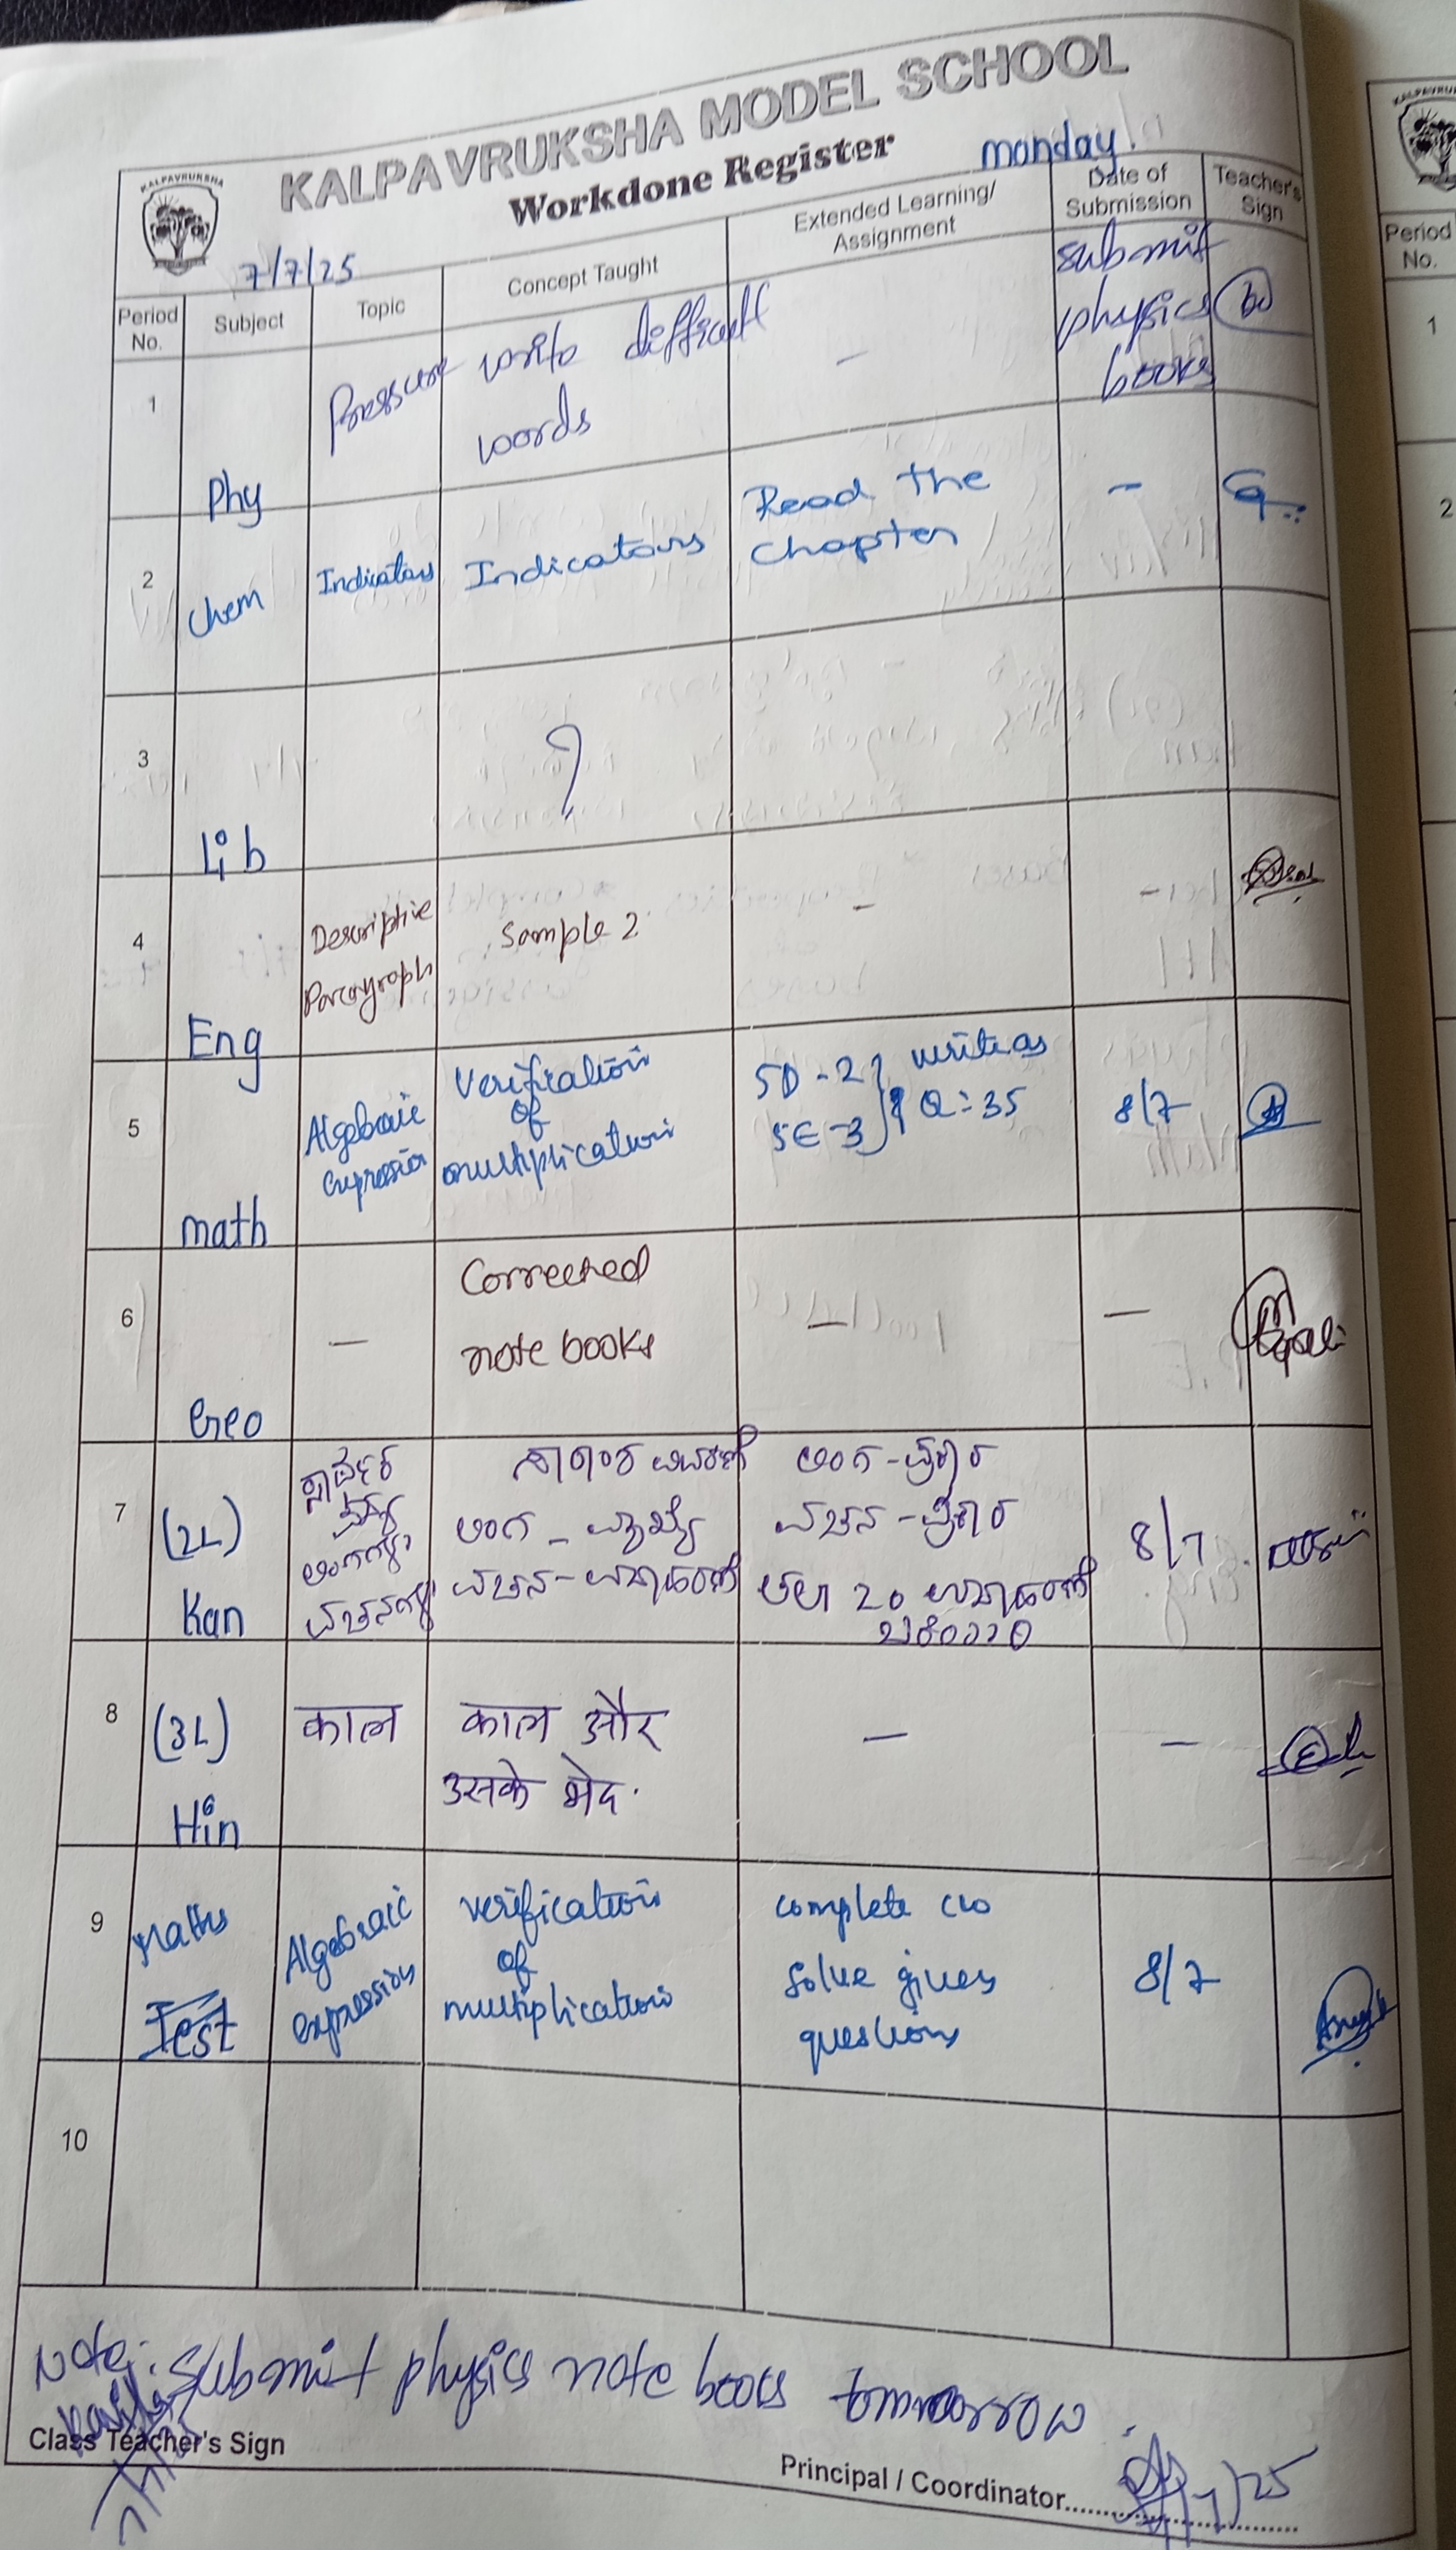 KALPAVRUKSHA MODEL SCHOOL
Workdone Register
monday
KALPAVRUKSHA
7/7/25
Period No.
Subject
Topic
Concept Taught
Extended Learning/
Assignment
Date of
Submission
Teacher's
Sign
1
Phy
Pressure
write difficult
words
-
submit
physics
books
2
Chem
Indicators
Indicators
Read the
Chapter
-
3
Lib
4
Eng
Descriptive
Paragraph
Sample 2
-
-
5
math
Algebraic
expression
Verification
of
multiplication
5D - 2 } write as
5E - 3 } Q = 35
8/7
6
Geo
-
Corrected
note books
-
-
7
(2L)
Kan
8/7
8
(3L)
Hin
काल
काल और
उसके भेद.
-
-
9
Maths
Test
Algebraic
expression
verification
of
multiplication
complete cw
solve given
questions
8/7
10
Note: Submit physics note books tomorrow.
Class Teacher's Sign
Principal / Coordinator
Period
No.
1
2